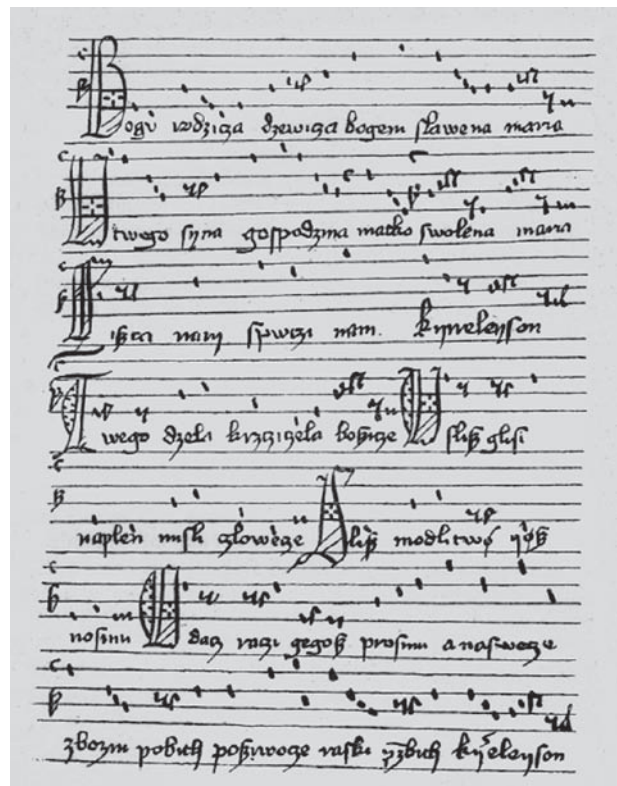 Bogv rodzicza dzewicza bogem slawena maria
U twego syna gospodzina matko swolena maria
nam spwczi nam. Kyrieleyson
Twego dzela krzcziczela bozicze Uslisz glosi
naplen misli czlowecze Slisz modlitwo yøsz
nosimi dacz raczi gegosz prosimi a naswecze
zbozni pobith poszywocze raski kyrieleyson